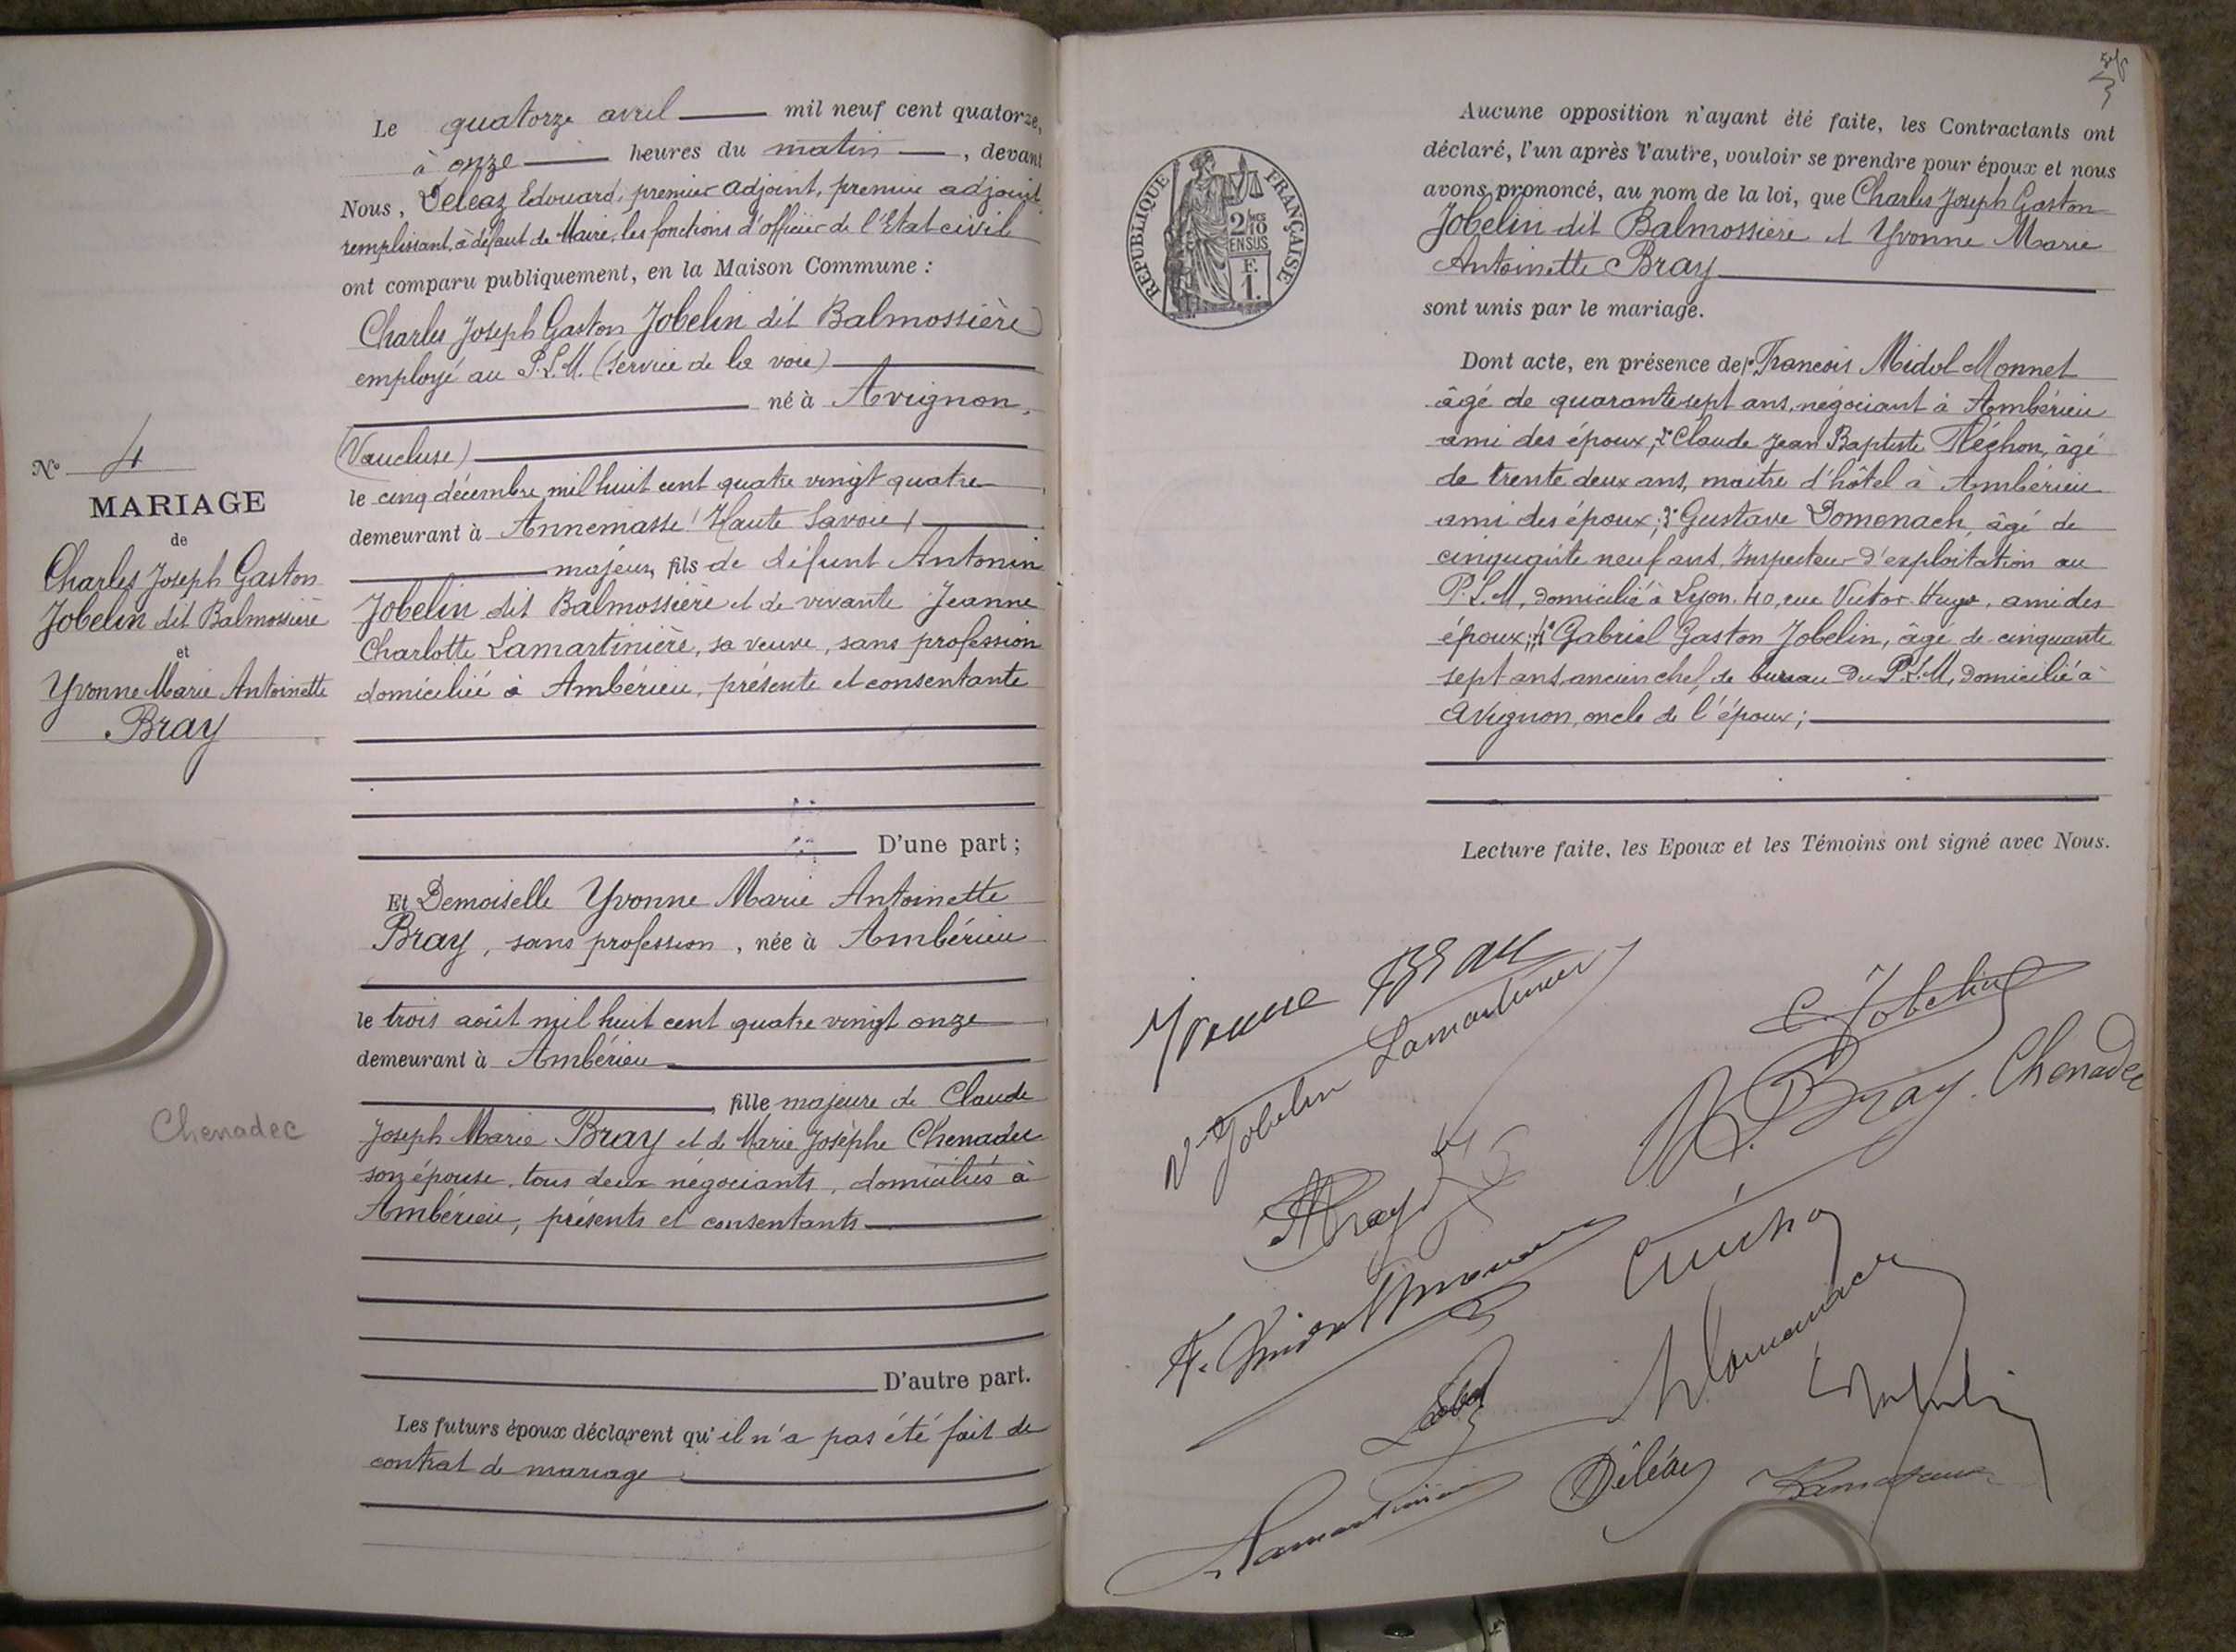 Le quatorze avril mil neuf cent quatorze,
à onze heures du matin, devant
Nous, Deléaz Edouard, premier adjoint, premier adjoint
remplissant, à défaut de Maire, les fonctions d'officier de l'Etat civil
ont comparu publiquement, en la Maison Commune :
Charles Joseph Gaston Jobelin dit Balmossière
employé au P.L.M. (service de la voie)
né à Avignon,
(Vaucluse)
le cinq décembre mil huit cent quatre vingt quatre
demeurant à Annemasse (Haute Savoie)
majeur, fils de défunt Antonin
Jobelin dit Balmossière et de vivante Jeanne
Charlotte Lamartinière, sa veuve, sans profession
domiciliée à Ambérieu, présente et consentante
D'une part ;
Et Demoiselle Yvonne Marie Antoinette
Bray, sans profession, née à Ambérieu
le trois août mil huit cent quatre vingt onze
demeurant à Ambérieu
, fille majeure de Claude
Joseph Marie Bray et de Marie Josèphe Chenadec
son épouse, tous deux négociants, domiciliés à
Ambérieu, présents et consentants
D'autre part.
Les futurs époux déclarent qu'il n'a pas été fait de
contrat de mariage
No 4
MARIAGE
de
Charles Joseph Gaston
Jobelin dit Balmossière
et
Yvonne Marie Antoinette
Bray
Chenadec
RÉPUBLIQUE FRANÇAISE
2/10
EN SUS
F.
1.
Aucune opposition n'ayant été faite, les Contractants ont
déclaré, l'un après l'autre, vouloir se prendre pour époux et nous
avons prononcé, au nom de la loi, que Charles Joseph Gaston
Jobelin dit Balmossière et Yvonne Marie
Antoinette Bray
sont unis par le mariage.
Dont acte, en présence de 1° Francois Midol Monnet
âgé de quarante sept ans, négociant à Ambérieu
ami des époux; 2° Claude Jean Baptiste Fléchon, âgé
de trente deux ans, maître d'hôtel à Ambérieu
ami des époux; 3° Gustave Domenach, âgé de
cinquante neuf ans, Inspecteur d'exploitation au
P.L.M, domicilié à Lyon. 40, rue Victor Hugo, ami des
époux; 4° Gabriel Gaston Jobelin, âgé de cinquante
sept ans, ancien chef de bureau du P.L.M, domicilié à
Avignon, oncle de l'époux;
Lecture faite, les Epoux et les Témoins ont signé avec Nous.
Yvonne Bray
C. Jobelin
Vve Jobelin Lamartinière
M. Bray. Chenadec
Bray
F. Midol Monnet
Domenach
Lamartinière
Déléaz